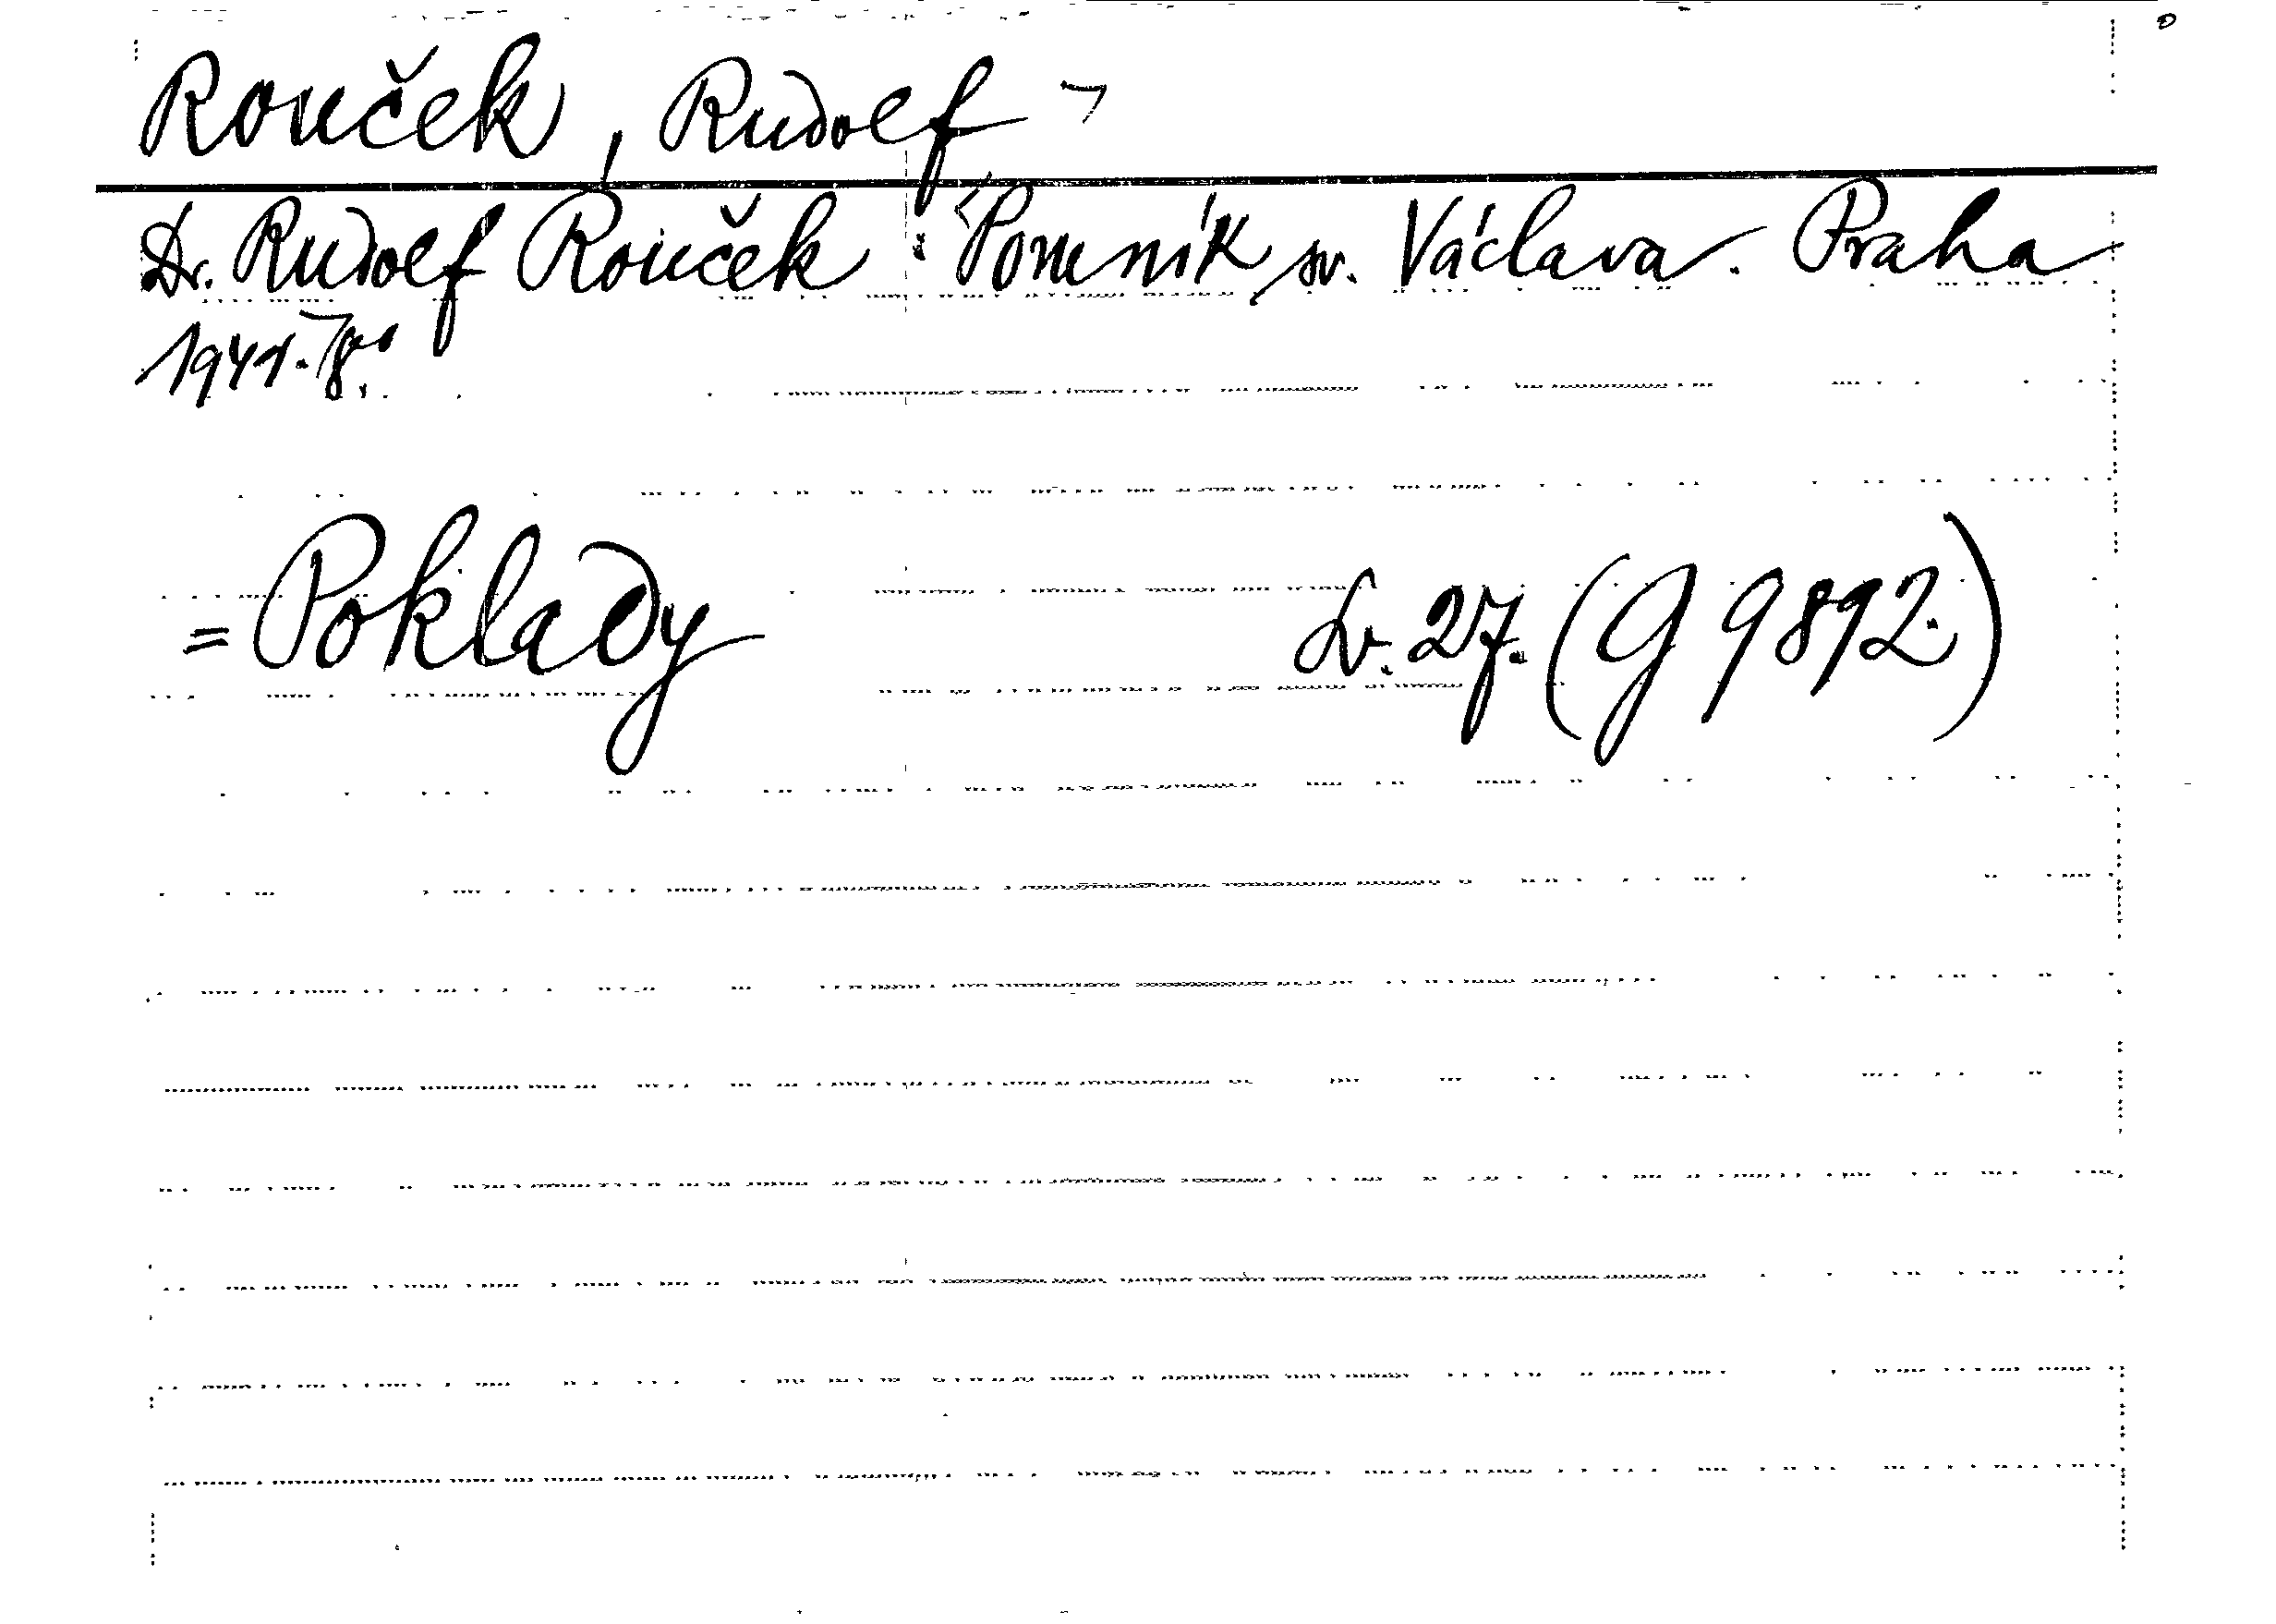 Rouček, Rudolf
Dr. Rudolf Rouček: Pomník sv. Václava. Praha
1941. 8°.
= Poklady Sv. 27. (G 9892.)